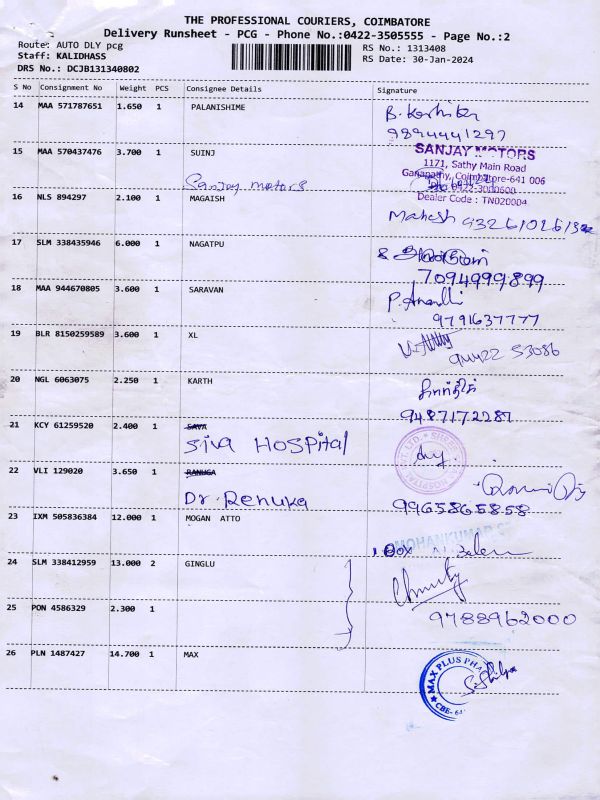 THE PROFESSIONAL COURIERS, COIMBATORE
Delivery Runsheet - PCG - Phone No.:0422-3505555 - Page No.:2
Route: AUTO DLY pcg
Staff: KALIDHASS
DRS No.: DCJB131340802
RS No.: 1313408
RS Date: 30-Jan-2024
S No Consignment No Weight PCS Consignee Details Signature
14 MAA 571787651 1.650 1 PALANISHIME
9894441297
15 MAA 570437476 3.700 1 SUINJ
Sanjay motors
SANJAY MOTORS
1171, Sathy Main Road
Ganapathy, Coimbatore-641 006
0422-3000600
Dealer Code : TN020004
16 NLS 894297 2.100 1 MAGAISH
Mahesh
17 SLM 338435946 6.000 1 NAGATPU
7094999899
18 MAA 944670805 3.600 1 SARAVAN
P. Anandhi
9791637777
19 BLR 8150259589 3.600 1 XL
94422 53086
20 NGL 6063075 2.250 1 KARTH
கார்த்திக்
9487172287
21 KCY 61259520 2.400 1 SAVA
Siva HOSPital
22 VLI 129020 3.650 1 RANUGA
Dr. Renuka
9965865858
23 IXM 505836384 12.000 1 MOGAN ATTO
MOHANKUMAR
1 Box
24 SLM 338412959 13.000 2 GINGLU
25 PON 4586329 2.300 1
9788962000
26 PLN 1487427 14.700 1 MAX
MAX PLUS PHA
CBE-64